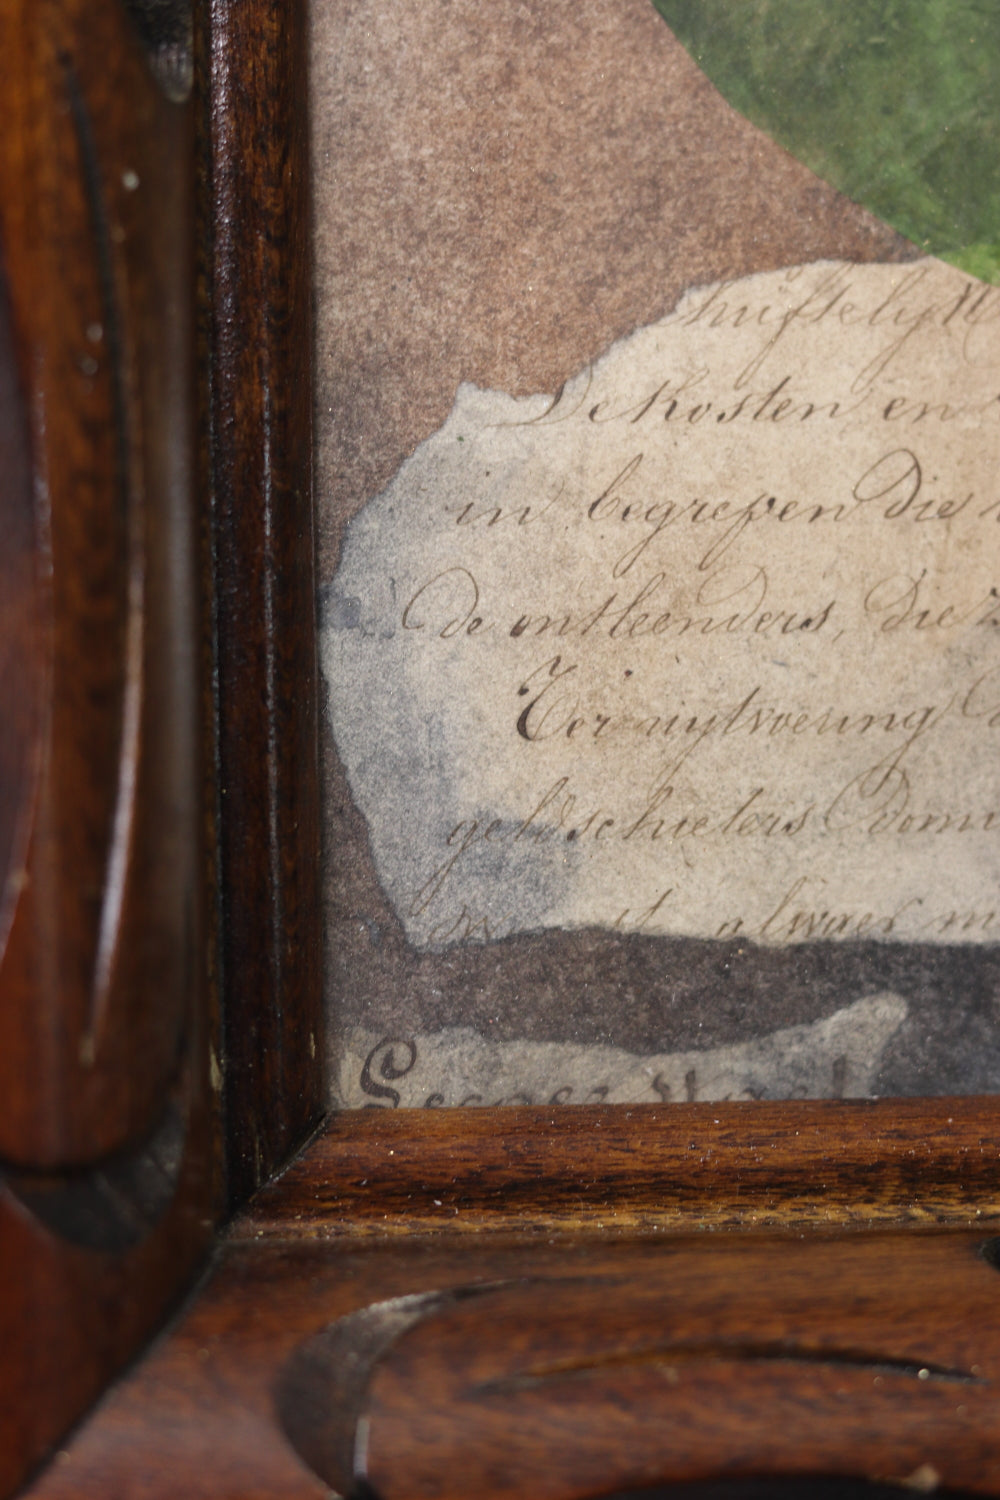 De Kosten en
in begrepen die
De ontleenders, die
Ter uijtvoering
geldschieters Domi
alwaer